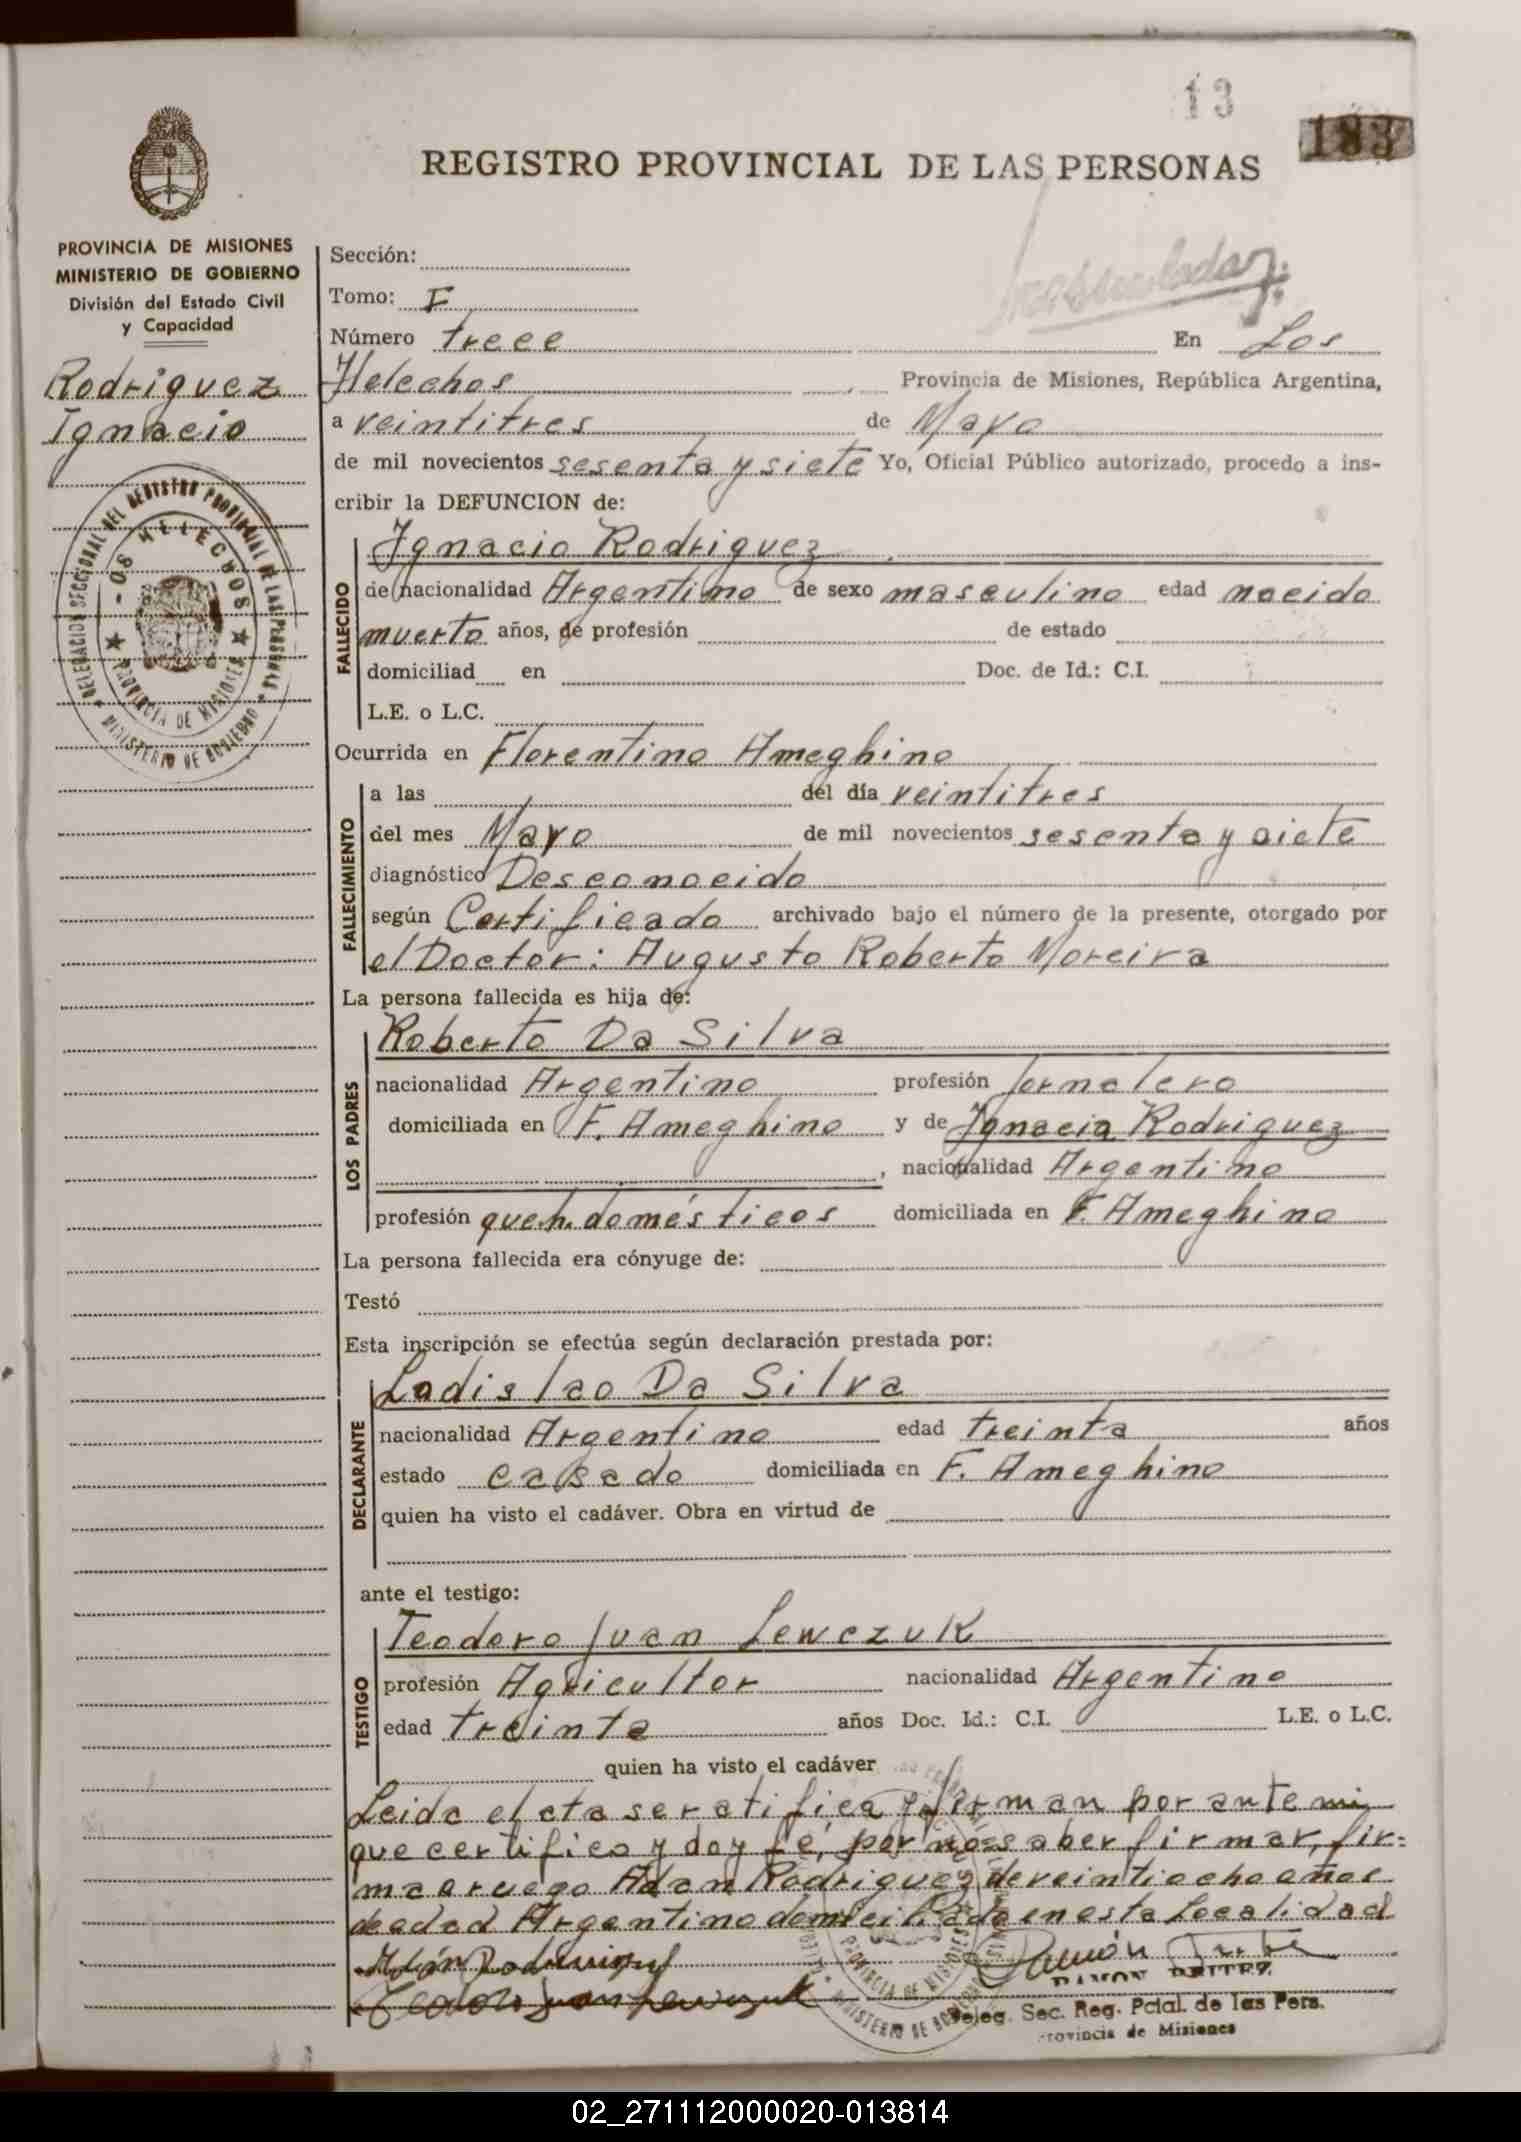 13
183
REGISTRO PROVINCIAL DE LAS PERSONAS
PROVINCIA DE MISIONES
MINISTERIO DE GOBIERNO
División del Estado Civil
y Capacidad
Rodriguez
Ignacio
DELEGACION SECCIONAL DEL REGISTRO PROVINCIAL DE LAS PERSONAS
LOS HELECHOS
PROVINCIA DE MISIONES
MINISTERIO DE GOBIERNO
Sección:
Tomo: I
Número trece En Los
Helechos Provincia de Misiones, República Argentina,
a veintitres de Mayo
de mil novecientos sesenta y siete Yo, Oficial Público autorizado, procedo a ins-
cribir la DEFUNCION de:
FALLECIDO
Ignacio Rodriguez
de nacionalidad Argentino de sexo masculino edad nacido
muerto años, de profesión de estado
domiciliad en Doc. de Id.: C.I.
L.E. o L.C.
Ocurrida en Florentino Ameghino
FALLECIMIENTO
a las del día veintitres
del mes Mayo de mil novecientos sesenta y siete
diagnóstico Desconocido
según Certificado archivado bajo el número de la presente, otorgado por
el Doctor: Augusto Roberto Moreira
La persona fallecida es hija de:
LOS PADRES
Roberto Da Silva
nacionalidad Argentino profesión Jornalero
domiciliada en F. Ameghino y de Ignacia Rodriguez
, nacionalidad Argentino
profesión queh. domésticos domiciliada en F. Ameghino
La persona fallecida era cónyuge de:
Testó
Esta inscripción se efectúa según declaración prestada por:
DECLARANTE
Ladislao Da Silva
nacionalidad Argentino edad treinta años
estado casado domiciliada en F. Ameghino
quien ha visto el cadáver. Obra en virtud de
ante el testigo:
TESTIGO
Teodoro Juan Lewczuk
profesión Agricultor nacionalidad Argentino
edad treinta años Doc. Id.: C.I. L.E. o L.C.
quien ha visto el cadáver
Leida el cta se ratifica y firman por ante mi
que certifico y doy fé, por no saber firmar, fir=
ma a ruego Adan Rodriguez de veintiocho años
de edad Argentino domiciliado en esta Localidad
Adán Rodriguez
Teodoro Juan Lewczuk
RAMON BRITEZ
Deleg. Sec. Reg. Pcial. de las Pers.
Provincia de Misiones
PROVINCIA DE MISIONES
MINISTERIO DE GOBIERNO
02_271112000020-013814